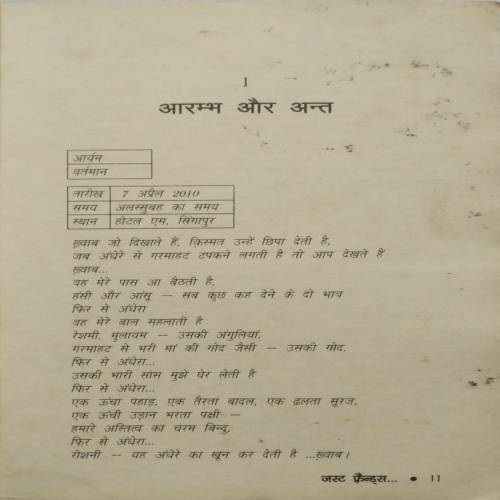 1
आरम्भ और अन्त
आर्यन
वर्तमान
तारीख 7 अप्रैल 2010
समय अलस्सुबह का समय
स्थान होटल एम, सिंगापुर
ख़्वाब जो दिखाते हैं, क़िस्मत उन्हें छिपा देती है,
जब अंधेरे से गरमाहट टपकने लगती है तो आप देखते हैं
ख़्वाब...
वह मेरे पास आ बैठती है,
हंसी और आंसू – सब कुछ कह देने के दो भाव
फिर से अंधेरा
वह मेरे बाल सहलाती है
रेशमी, मुलायम – उसकी अंगुलियां,
गरमाहट से भरी मां की गोद जैसी – उसकी गोद,
फिर से अंधेरा...
उसकी भारी सांस मुझे घेर लेती है
फिर से अंधेरा...
एक ऊंचा पहाड़, एक तैरता बादल, एक ढलता सूरज,
एक ऊंची उड़ान भरता पक्षी –
हमारे अस्तित्व का चरम बिन्दु,
फिर से अंधेरा...
रोशनी – यह अंधेरे का खून कर देती है ...ख़्वाब।
जस्ट फ्रैन्ड्स... • 11